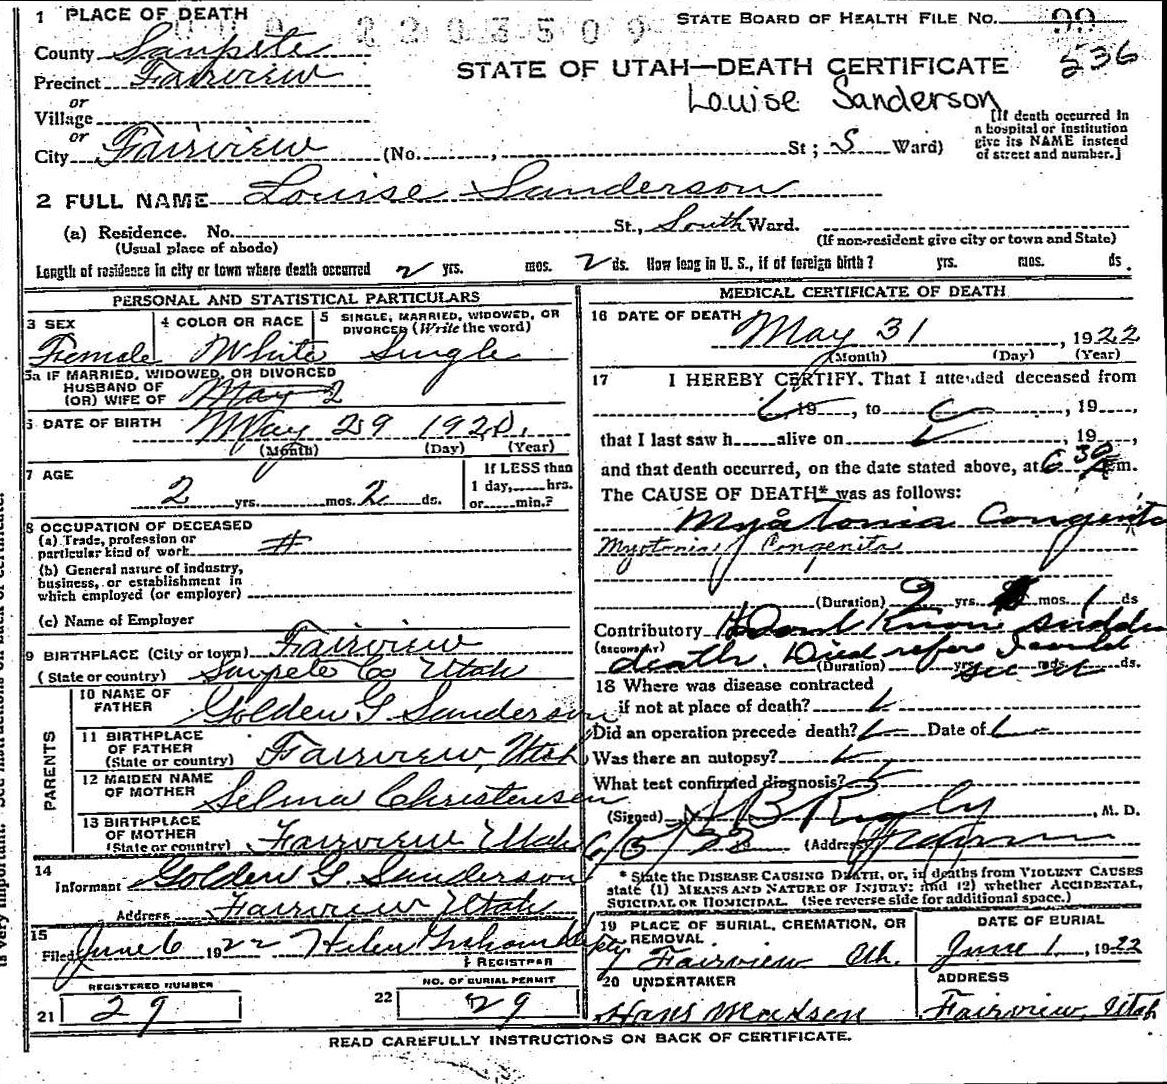 1 PLACE OF DEATH
STATE BOARD OF HEALTH FILE NO. 99
County Sanpete
236
Precinct Fairview
STATE OF UTAH—DEATH CERTIFICATE
Louise Sanderson
or
Village
or
City Fairview (No. , St ; S Ward)
[If death occurred in
a hospital or institution
give its NAME instead
of street and number.]
2 FULL NAME Louise Sanderson
(a) Residence. No. St., South Ward.
(Usual place of abode)
(If non-resident give city or town and State)
Length of residence in city or town where death occurred 2 yrs. mos. 2 ds. How long in U. S., if of foreign birth? yrs. mos. ds.
PERSONAL AND STATISTICAL PARTICULARS
3 SEX Female
4 COLOR OR RACE White
5 SINGLE, MARRIED, WIDOWED, OR
DIVORCED (Write the word) Single
5a IF MARRIED, WIDOWED, OR DIVORCED
HUSBAND OF
(OR) WIFE OF May 2
6 DATE OF BIRTH May 29 1920.
(Month) (Day) (Year)
7 AGE
2 yrs. mos. 2 ds.
If LESS than
1 day, hrs.
or min.?
8 OCCUPATION OF DECEASED
(a) Trade, profession or
particular kind of work
(b) General nature of industry,
business, or establishment in
which employed (or employer)
(c) Name of Employer
9 BIRTHPLACE (City or town) Fairview
(State or country) Sanpete Co Utah
PARENTS
10 NAME OF
FATHER Golden G Sanderson
11 BIRTHPLACE
OF FATHER
(State or country) Fairview, Utah
12 MAIDEN NAME
OF MOTHER Selma Christensen
13 BIRTHPLACE
OF MOTHER
(State or country) Fairview Utah
14
Informant Golden G. Sanderson
Address Fairview Utah
15
Filed June 6 1922 Helen
REGISTRAR
REGISTERED NUMBER
21 29
NO. OF BURIAL PERMIT
22 29
MEDICAL CERTIFICATE OF DEATH
16 DATE OF DEATH
May 31, 1922
(Month) (Day) (Year)
17 I HEREBY CERTIFY, That I attended deceased from
19 , to , 19 ,
that I last saw h alive on , 19 ,
and that death occurred, on the date stated above, at 6 30 m.
The CAUSE OF DEATH* was as follows:
Myatonia Congenita
Myotonia Congenita
(Duration) 2 yrs. mos. 1 ds
Contributory Dont Know sudden
(SECONDARY) death. Died before I could
(Duration) yrs. mos. ds. see it
18 Where was disease contracted
if not at place of death?
Did an operation precede death? Date of
Was there an autopsy?
What test confirmed diagnosis?
(Signed) , M. D.
6/5/22 (Address)
* State the DISEASE CAUSING DEATH, or, in deaths from VIOLENT CAUSES
state (1) MEANS AND NATURE OF INJURY; and (2) whether ACCIDENTAL,
SUICIDAL OR HOMICIDAL. (See reverse side for additional space.)
19 PLACE OF BURIAL, CREMATION, OR
REMOVAL
Fairview Ut.
DATE OF BURIAL
June 1, 1922
20 UNDERTAKER
Hans Madsen
ADDRESS
Fairview, Utah
READ CAREFULLY INSTRUCTIONS ON BACK OF CERTIFICATE.